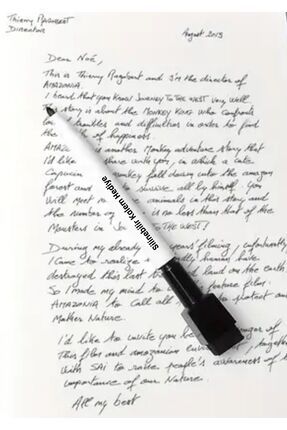 Thierry Ragobert
Director
August 2013
Dear Noé,
This is Thierry Ragobert and I'm the director of
AMAZONIA.
I heard that you know JOURNEY TO THE WEST very well.
story is about the MONKEY KING who confronts
troubles and difficulties in order to find
of happiness.
another Monkey adventure story that
I'd like share with you, in which a cute
Capucin key falls down into the amazon
forest and survive all by himself. You
will meet animals in this story and
the number of is no less than that of the
Monsters in TO THE WEST!
During my already years filming, unfortunately
I came to realize human have
destroyed this last land on the earth
So I made my mind to feature film:
AMAZONIA to call all protect
Mother Nature.
I'd like to invite you be of
This film and amazonian
with SAI to raise people's awareness of
importance of our Nature.
All my best
Silinebilir Kalem Hediye